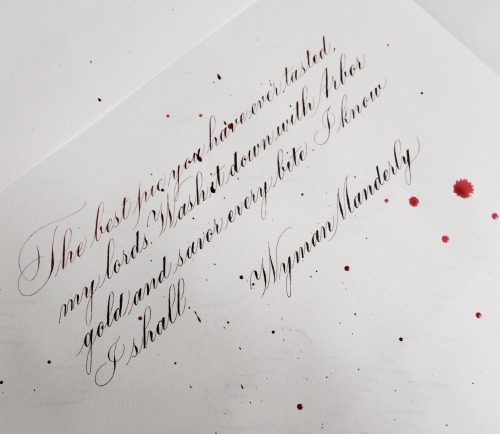 The best pie you have ever tasted,
my lords. Wash it down with Arbor
gold and savor every bite. I know
I shall.
Wyman Manderly